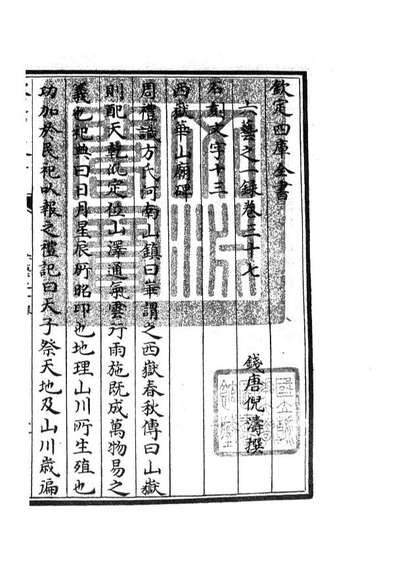 欽定四庫全書
六藝之一錄卷三十七
錢唐倪濤撰
石刻文字十三
西嶽華山廟碑
周禮識方氏河南山鎮曰華謂之西嶽春秋傳曰山嶽
則配天乾㐲定位山澤通氣雲行雨施既成萬物易之
義也祀典曰日月星辰所昭卬也地理山川所生殖也
功加於民祀以報之禮記曰天子祭天地及山川歳徧